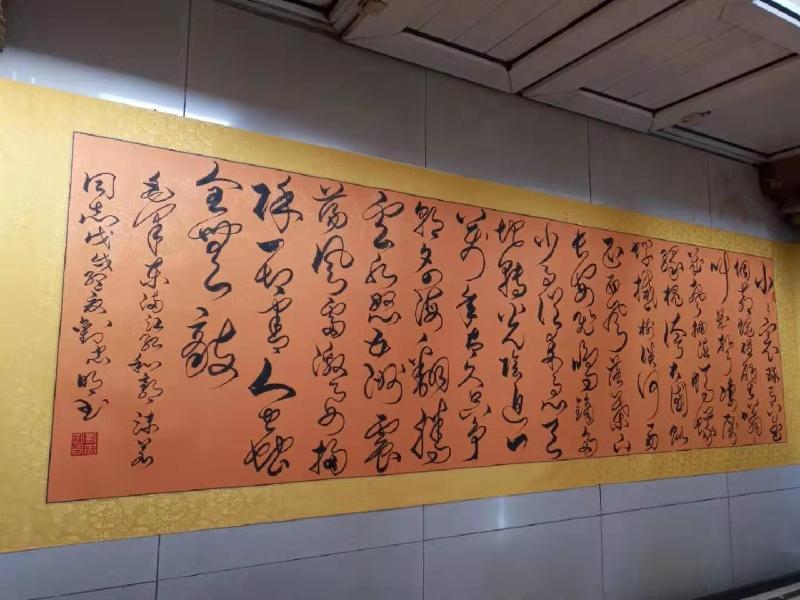 小小寰球有几
個苍蝇碰壁嗡嗡
叫几声凄厉
几声抽泣蚂蚁
缘槐夸大国蚍
蜉撼树谈何易
正西风落葉下
长安飞鸣镝多
少事从来急天
地转光阴迫一
万年太久只争
朝夕四海翻腾
云水怒五洲震
荡风雷激要扫
除一切害人虫
全無敌
毛泽东满江红和郭沫若
同志戊戌夏劉忠明书